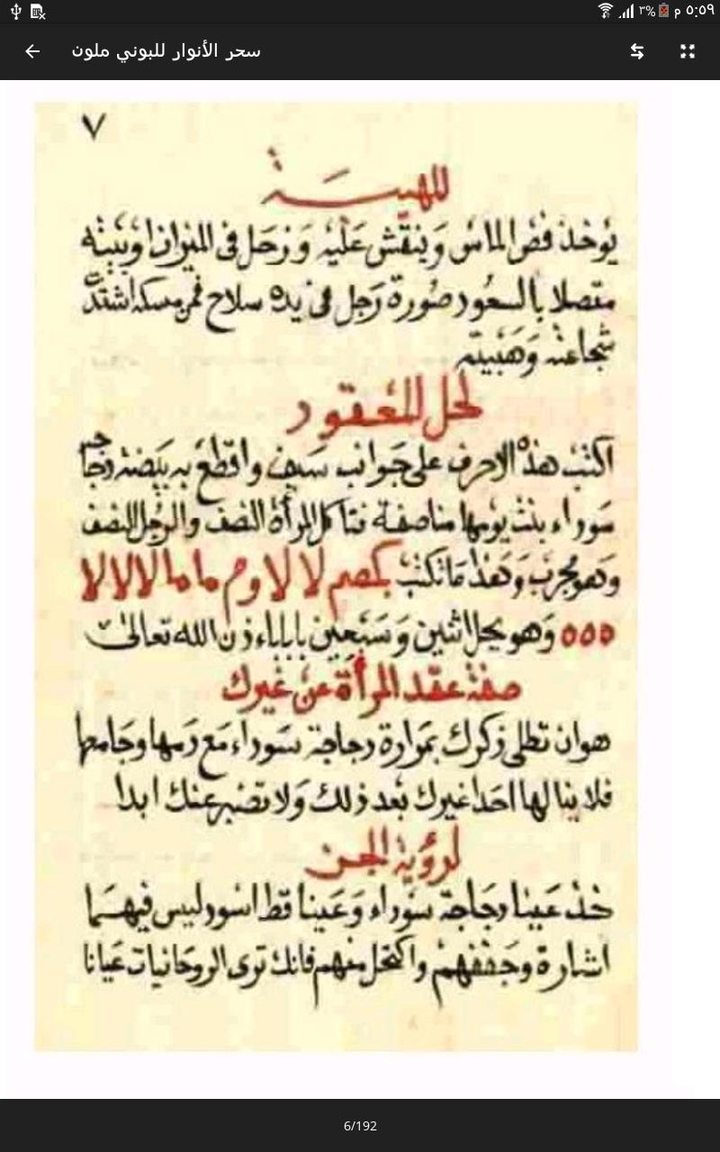 ٥:٥٩ م ٣%
سحر الأنوار للبوني ملون
٧
للهيبة
يوخذ فص الماس وينقش عليه وزحل فى الميزان او بيته
متصلا بالسعود صورة رجل فى يده سلاح فمن مسكه اشتدت
شجاعته وهيبته
لحل المعقود
اكتب هذه الاحرف على جوانب سيف واقطع به بيضة دجاجه
سوداء بنت يومها مناصفة فتاكل المرأة النصف والرجل النصف
وهو مجرب وهذا ما تكتب بكصم لا لا لا وم ما ما لا لا لا لا
٥٥٥ وهو يحل اثنين وسبعين باباباذن الله تعالى
صفة عقد المرأة عن غيرك
هو ان تطلى ذكرك بمرارة دجاجة سوداء مع دمها وجامعها
فلا ينالها احدا غيرك بعد ذلك ولا تصبر عنك ابدا
لرؤية الجن
خذ عينا دجاجة سوداء وعينا قط اسود ليس فيهما
اشارة وجففهم واكتحل منهم فانك ترى الروحانيات عيانا
6/192